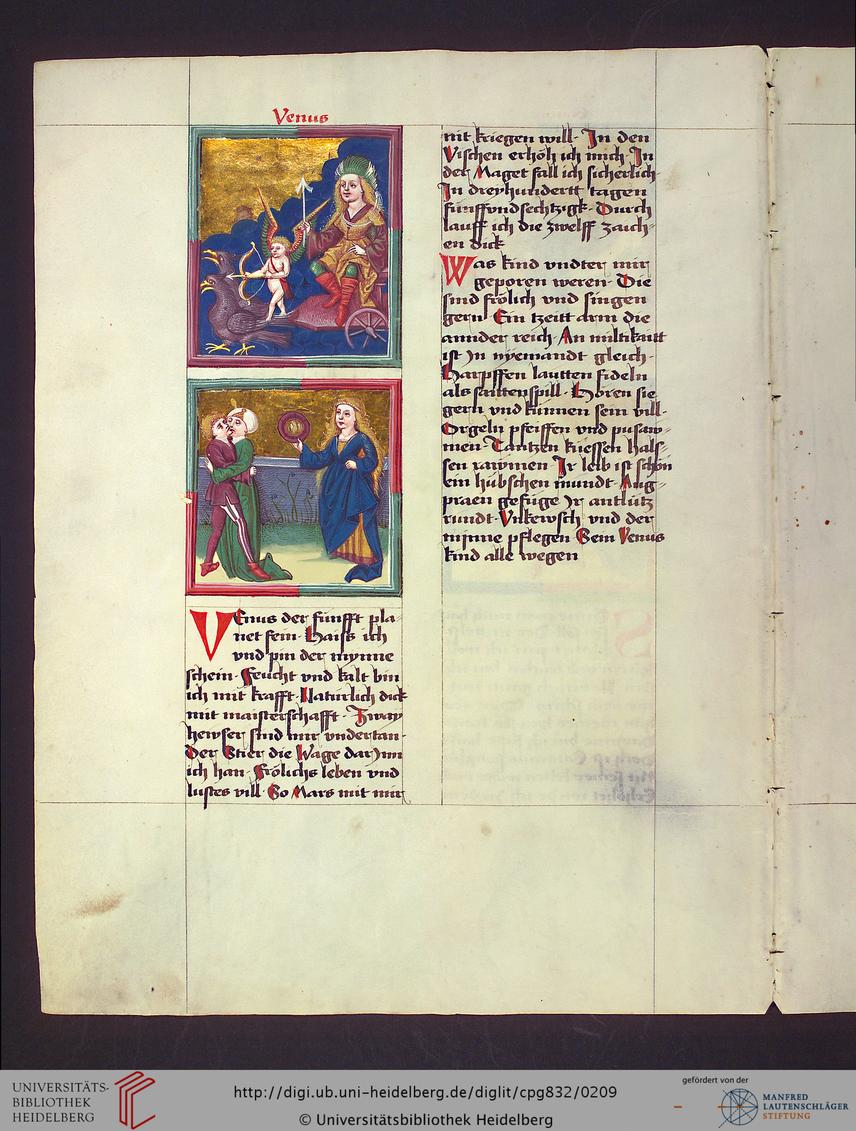 Venus
VEnus der funfft pla
net fein· Haiss ich
vnd pin der mynne
schein· Feucht vnd kalt bin
ich mit krafft· Naturlich dick
mit maisterschafft· Zway
hewser sind mir vndertan·
Der Stier die Wage dar Inn
ich han· Frölichs leben vnd
lustes vill· So Mars mit mir
nit kriegen will· In den
Vischen erhöh ich mich· In
der Maget fall ich sicherlich·
In dreyhundertt tagen
funffvndsechtzigk· Durch
lauff ich die zwelff zaich
en dick·
Was kind vndter mir
geporen weren· Die
sind frölich vnd singen
gern· Ein tzeitt arm die
annder reich· An miltikaitt
ist In nyemandt gleich·
Harpffen lautten fideln
als saittenspill· Hören sie
gern vnd künnen sein vill·
Orgeln pfeiffen vnd pusaw
nen· Tantzen kiessen hals
sen rawmen· Ir leib ist schön
ein hubschen mundt· Aug
praen gefuge Ir antlütz
rundt· Vnkewsch vnd der
mynne pflegen· Sein Venus
kind alle wegen
UNIVERSITÄTS-
BIBLIOTHEK
HEIDELBERG
http://digi.ub.uni-heidelberg.de/diglit/cpg832/0209
© Universitätsbibliothek Heidelberg
gefördert von der
MANFRED
LAUTENSCHLÄGER
STIFTUNG